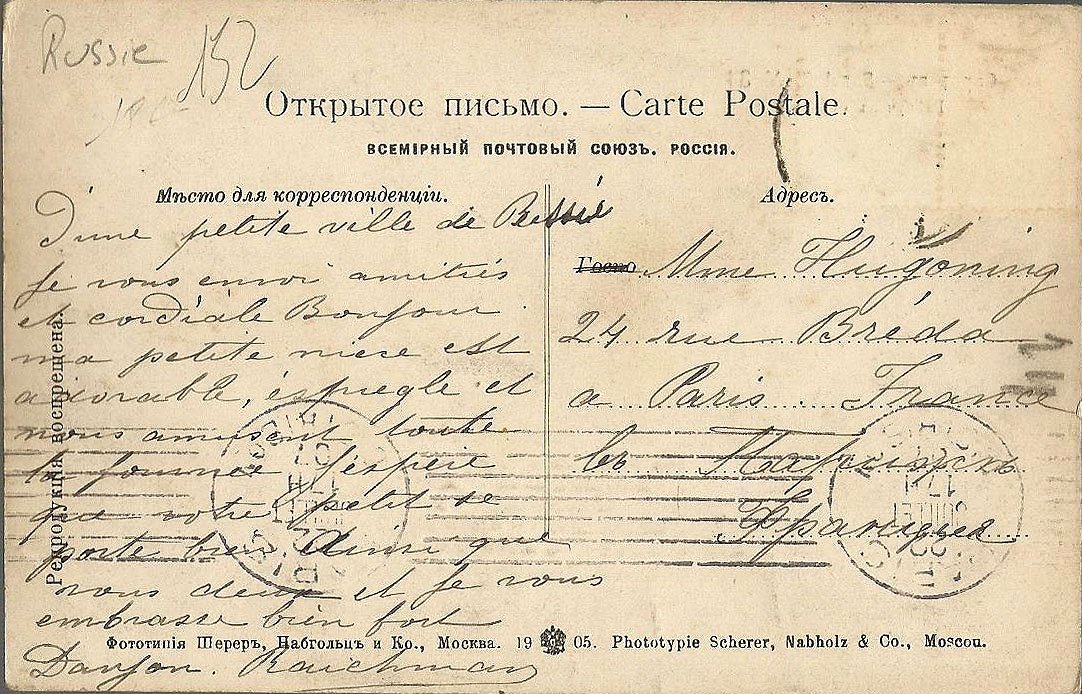 Russie 152
Открытое письмо. — Carte Postale.
ВСЕМІРНЫЙ ПОЧТОВЫЙ СОЮЗЪ. РОССІЯ.
Мѣсто для корреспонденціи.
D'une petite ville de Russie
Je vous envoi amitiés
et cordiale Bonjour
ma petite niece est
adorable, éspiegle et
nous amusent toute
la journee J'éspere
que votre petit se
porte bien Ainsi que
vous deux et Je vous
embrasse bien fort
Raichman
Адресъ.
Mme Hugoning
24 rue Bréda
a Paris. France
въ Парижъ
Франция
PARIS
JUILLET
Репродукція воспрещена.
Фототипія Шереръ, Набгольцъ и Ко., Москва. 19 05. Phototypie Scherer, Nabholz & Co., Moscou.